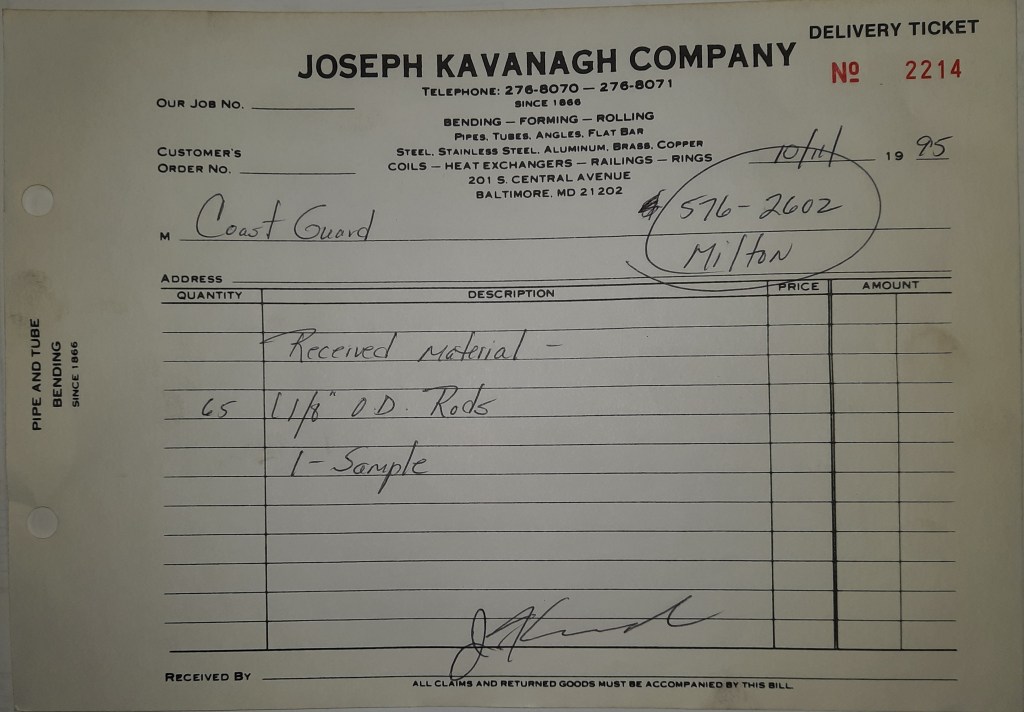 DELIVERY TICKET
JOSEPH KAVANAGH COMPANY
Nº 2214
TELEPHONE: 276-8070 — 276-8071
SINCE 1866
OUR JOB NO.
BENDING — FORMING — ROLLING
PIPES, TUBES, ANGLES, FLAT BAR
STEEL, STAINLESS STEEL, ALUMINUM, BRASS, COPPER
COILS — HEAT EXCHANGERS — RAILINGS — RINGS
201 S. CENTRAL AVENUE
BALTIMORE, MD 21202
CUSTOMER'S
ORDER NO.
10/11/ 19 95
576-2602
Milton
M Coast Guard
ADDRESS
QUANTITY DESCRIPTION PRICE AMOUNT
Received Material -
65 1 1/8" O.D. Rods
1 - Sample
RECEIVED BY
ALL CLAIMS AND RETURNED GOODS MUST BE ACCOMPANIED BY THIS BILL.
PIPE AND TUBE
BENDING
SINCE 1866